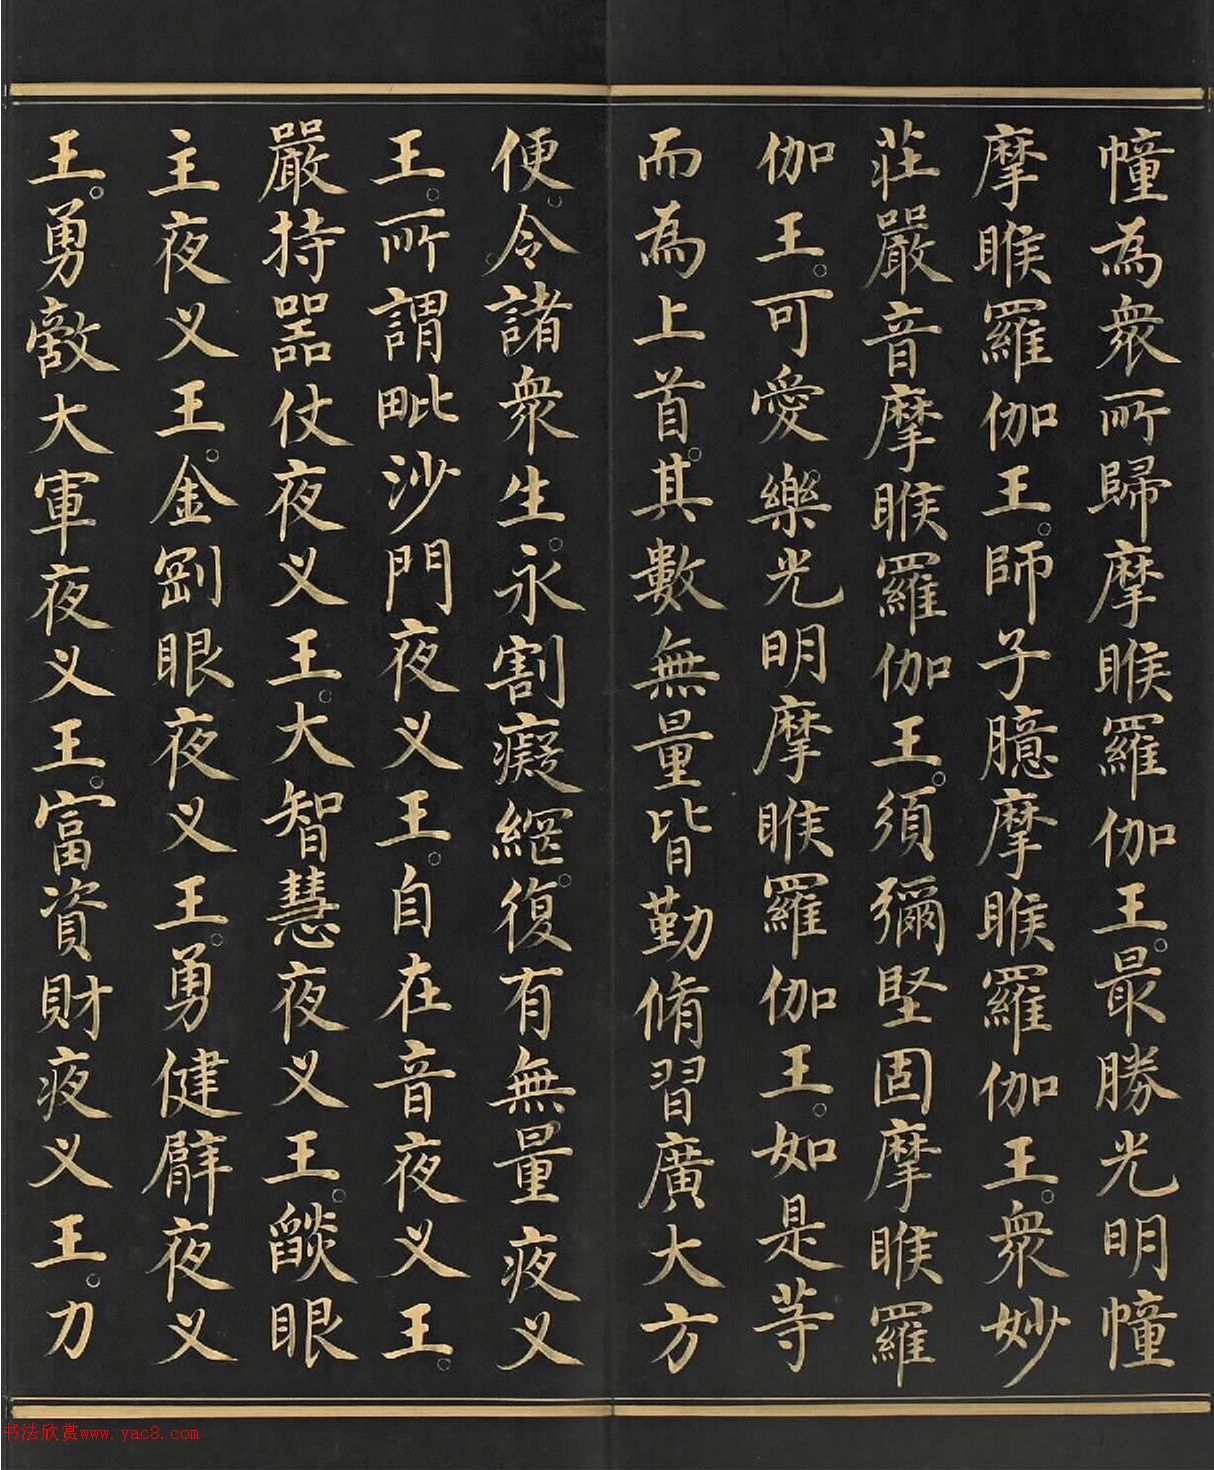 幢為衆所歸摩睺羅伽王。最勝光明幢
摩睺羅伽王。師子臆摩睺羅伽王。衆妙
莊嚴音摩睺羅伽王。須彌堅固摩睺羅
伽王。可愛樂光明摩睺羅伽王。如是等
而為上首。其數無量皆勤脩習廣大方
便。令諸衆生。永割癡網。復有無量夜义
王。所謂毗沙門夜义王。自在音夜义王。
嚴持器仗夜义王。大智慧夜义王。燄眼
主夜义王。金剛眼夜义王。勇健臂夜义
王。勇敵大軍夜义王。富資財夜义王。力
书法欣赏www.yac8.com